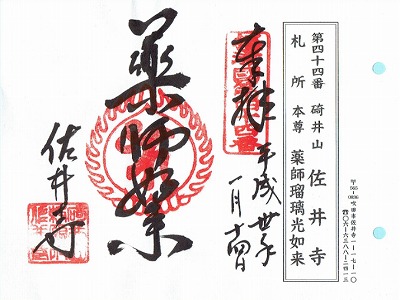 第四十四番 碕井山 佐井寺
札所 本尊 薬師瑠璃光如来
〒565-0836 吹田市佐井寺一ー一七ー一〇
☎〇六ー六三八八ー二四一三
奉拝 平成丗年
一月十四日
藥師如来
佐井寺